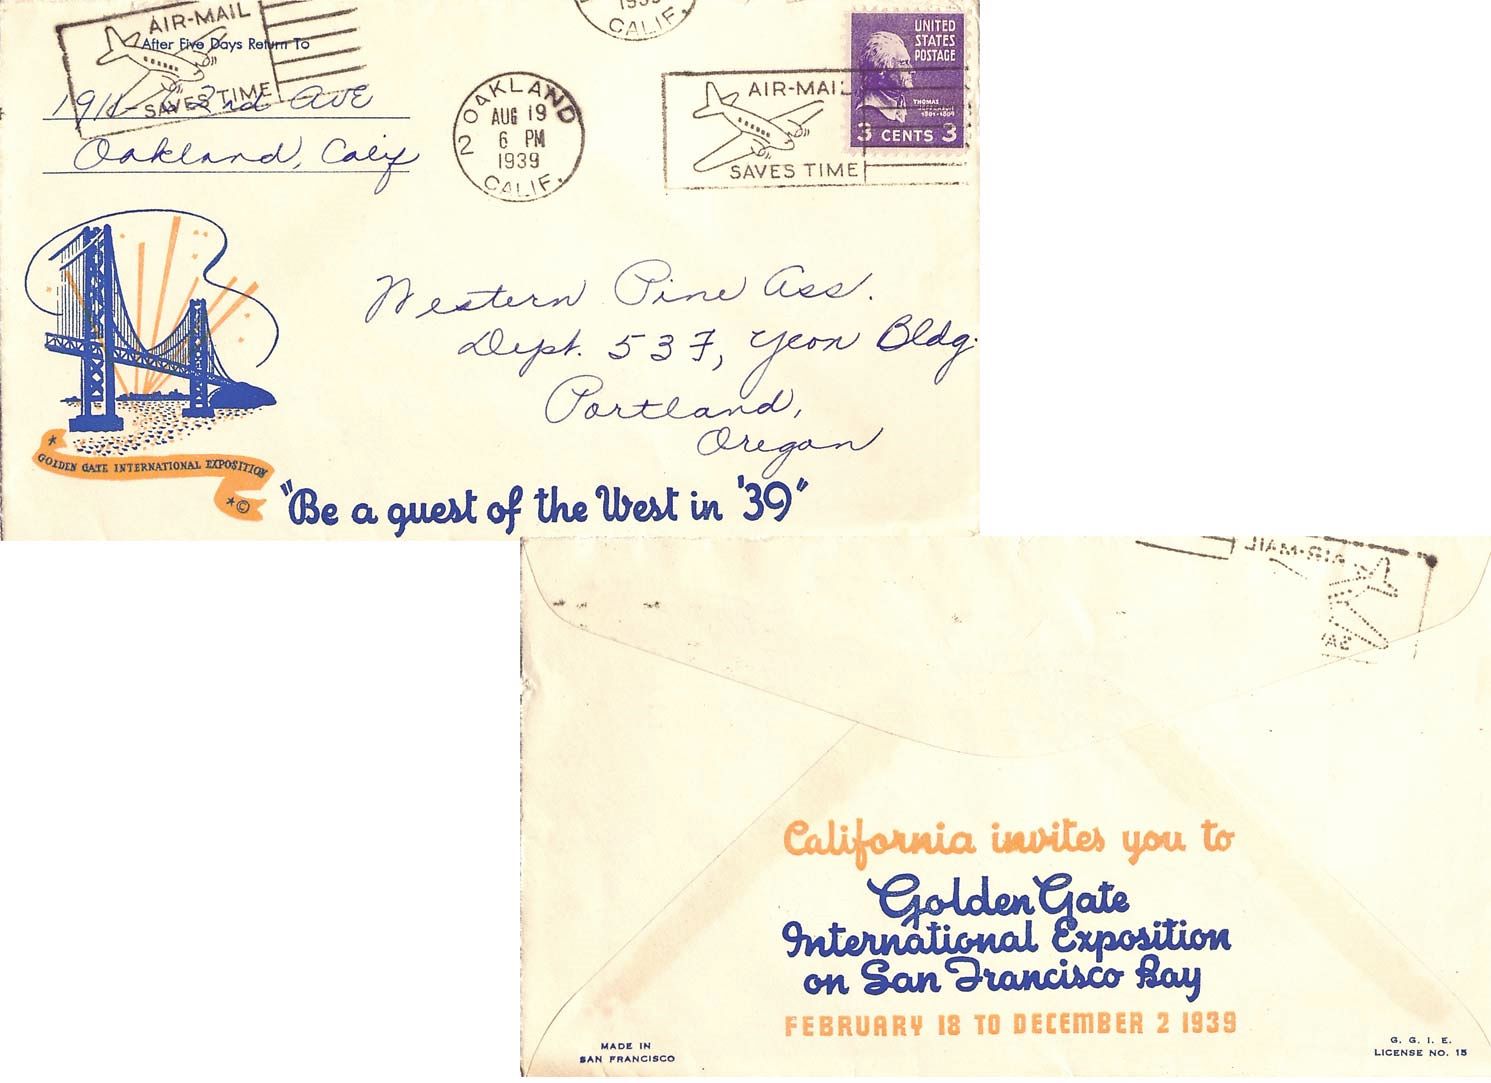 AIR-MAIL
SAVES TIME
After Five Days Return To
Oakland, Calif
1939
CALIF.
2 OAKLAND
AUG 19
6 PM
1939
CALIF.
AIR-MAIL
SAVES TIME
UNITED
STATES
POSTAGE
THOMAS
JEFFERSON
1801-1809
3 CENTS 3
Western Pine Ass.
Dept. 537, Yeon Bldg.
Portland,
Oregon
GOLDEN GATE INTERNATIONAL EXPOSITION
©
"Be a guest of the West in '39"
AIR-MAIL
SA
California invites you to
Golden Gate
International Exposition
on San Francisco Bay
FEBRUARY 18 TO DECEMBER 2 1939
MADE IN
SAN FRANCISCO
G. G. I. E.
LICENSE NO. 15